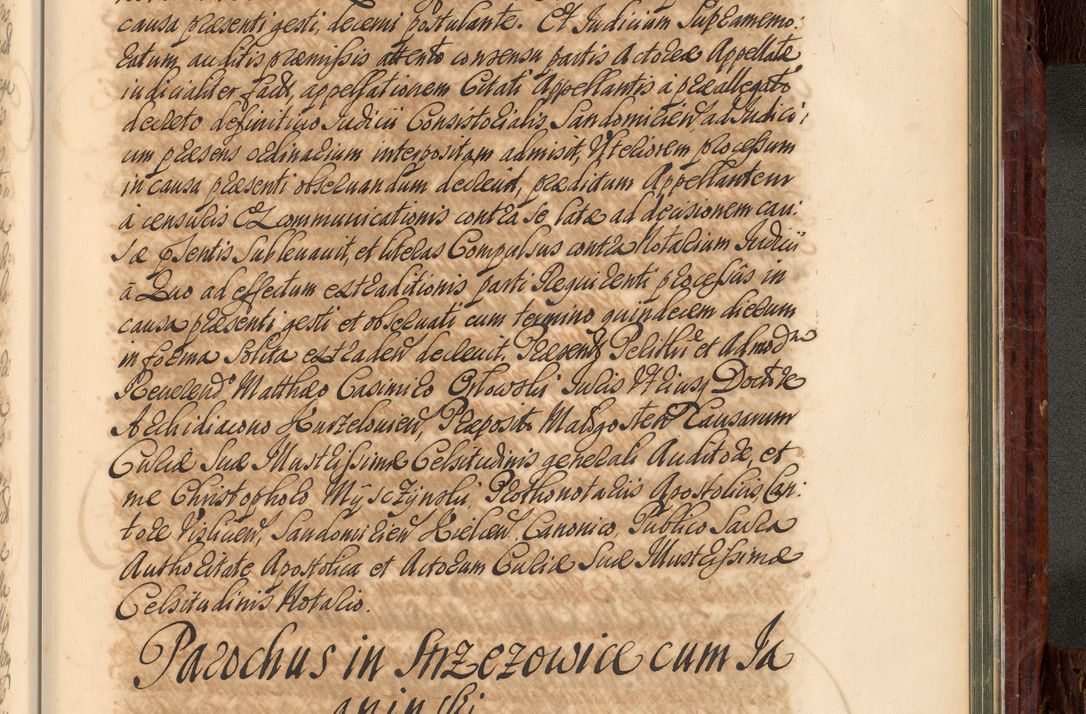 causa præsenti gesti, decerni postulante. Et Judicium Supramemo:
ratum, auditis præmissis attento consensu partis Actoreæ Appellatæ
judicialiter facto, appellationem Citati Appellantis à præallegato
decreto definitivo Judicii Consistorialis Sandomirien̄ ad Judici:
um præsens ordinarium interpositam admisit, Ulteriorem processum
in causa præsenti observandum decrevit, prædictum Appellantem
à censuris Excommunicationis contra se latæ ad decisionem cau:
sæ p̄sentis sublevavit, et literas Compulsus contra Notarium Judicii
à Quo ad effectum extraditionis parti Requirenti processûs in
causa præsenti gesti et observati cum termino quindecim dierum
in forma solita extraden̄ decrevit. Præsentib Perillri et Admodm
Reverendo Matthæo Casimiro Orłowski Juris Utriusq Doctore
Archidiacono Kurzelovien̄, Præposito Małogosten̄ Causarum
Curiæ Suæ Illustrissimæ Celsitudinis generali Auditore, et
me Christophoro Myſczynski Prothonotariis Apostolicis Can:
tore Vislicien̄, Sandomirien̄ Kielcen̄ Canonico, Publico Sacra
Authoritate Apostolica et Actorum Curiæ Suæ Illustrissimæ
Celsitudinis Notario.
Parochus in Strzezowice cum Ja
ninski